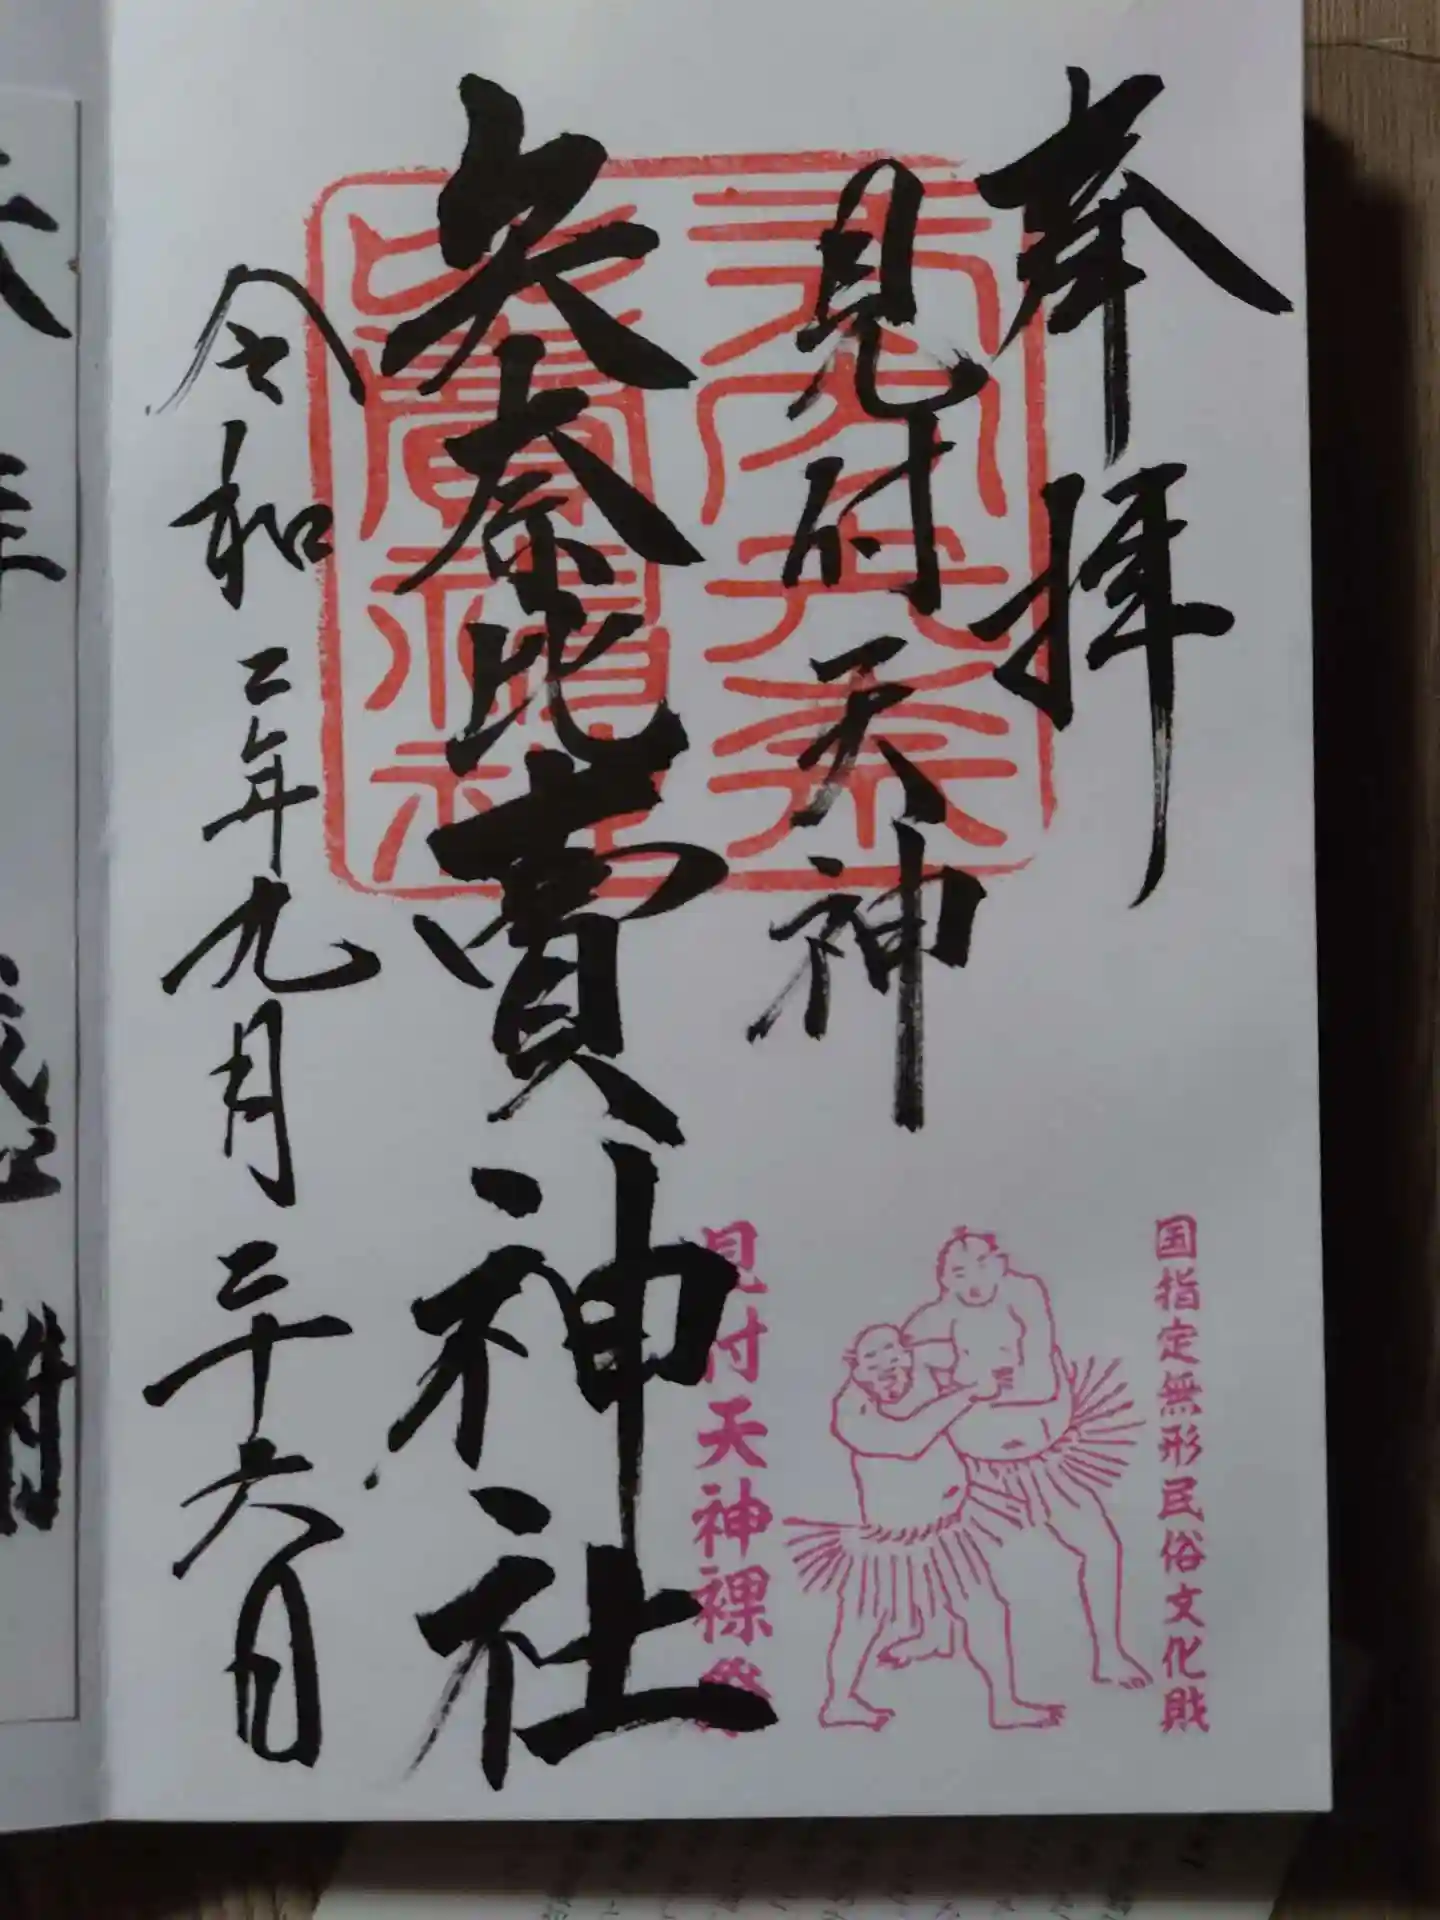 奉拝
見付天神
矢奈比賣神社
令和二年九月二十六日
国指定無形民俗文化財
見付天神裸祭